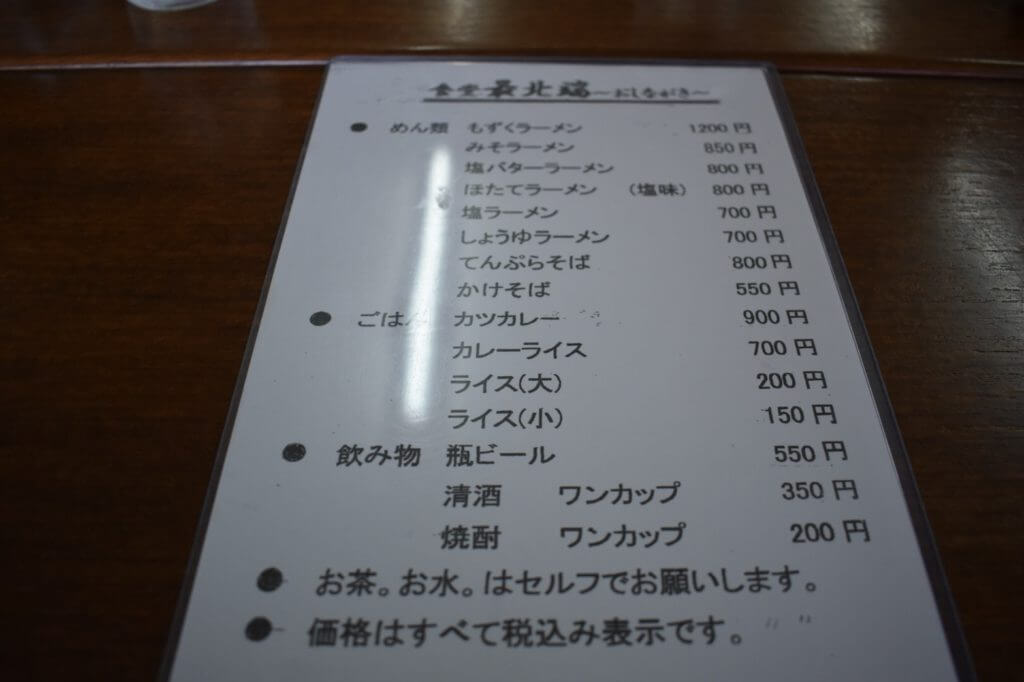 食堂 最北端 ~おしながき~
● めん類 もずくラーメン 1200円
みそラーメン 850円
塩バターラーメン 800円
ほたてラーメン (塩味) 800円
塩ラーメン 700円
しょうゆラーメン 700円
てんぷらそば 800円
かけそば 550円
● ごはん カツカレー 900円
カレーライス 700円
ライス(大) 200円
ライス(小) 150円
● 飲み物 瓶ビール 550円
清酒 ワンカップ 350円
焼酎 ワンカップ 200円
● お茶。お水。はセルフでお願いします。
● 価格はすべて税込み表示です。